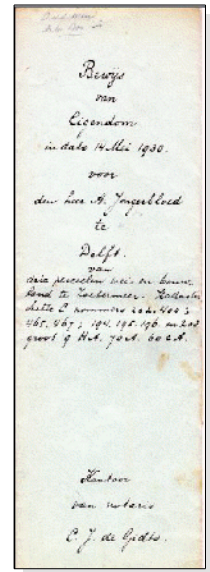 Bewijs
van
Eigendom
in dato 14 Mei 1930.
voor
den heer A. Jongerbloed
te
Delft.
van
drie perceelen wei- en bouw
land te Zoetermeer. Kadaster
sectie C nommers
465. 467; 194. 195. 196. en
groot 9 H.A. 70 A. 60 cA.
Kantoor
van notaris
C. J. de